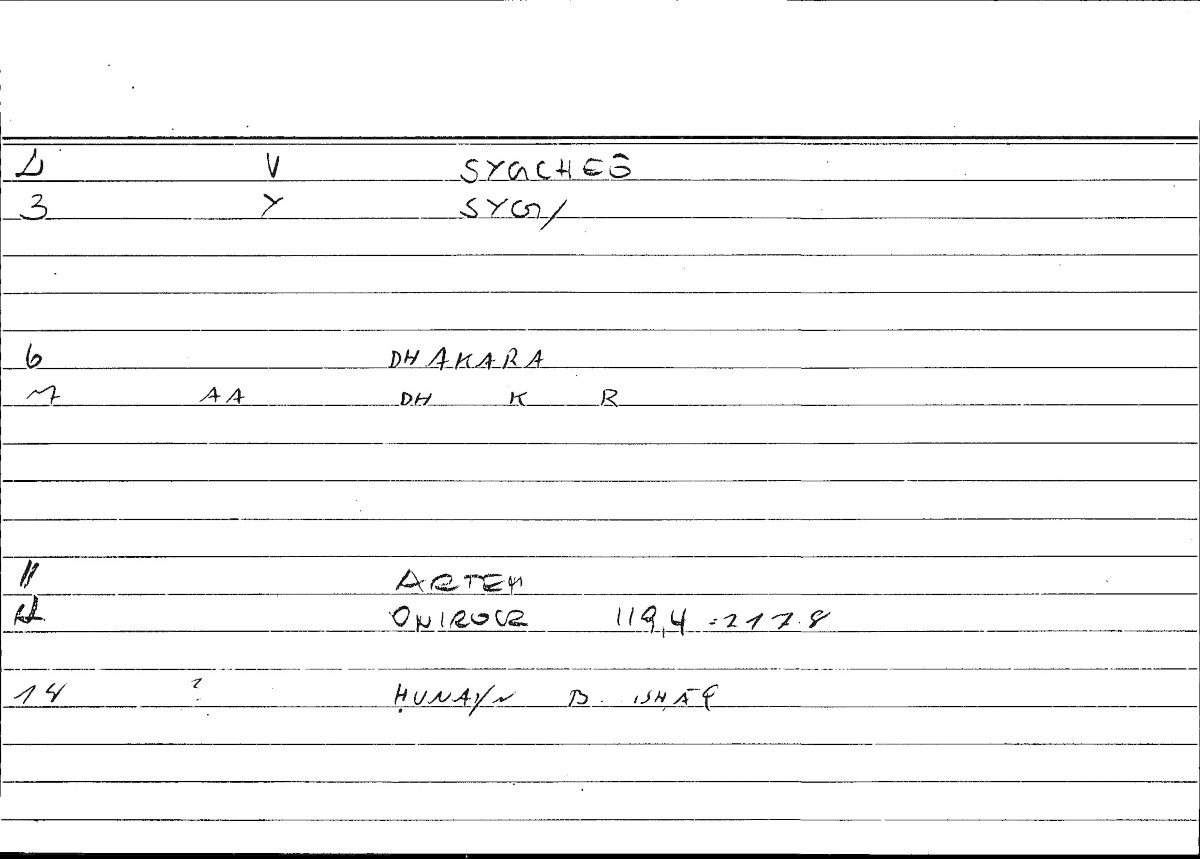 V SYGCHEŌ
3 Y SYG/
6 DHAKARA
7 AA DH K R
11 ARTEM
ONIROCR 119,4 = 217.8
14 ? ḤUNAYN B. ISḤĀQ